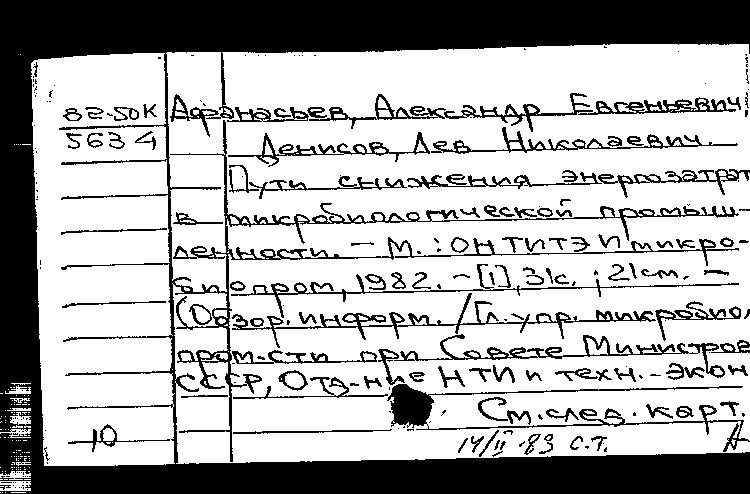 82-50К Афанасьев, Александр Евгеньевич,
5634 Денисов, Лев Николаевич.
Пути снижения энергозатрат
в микробиологической промыш-
ленности. — М.: ОНТИТЭИмикро-
биопром, 1982. – [1], 31с. ; 21см. —
(Обзор. информ. / Гл. упр. микробиол.
пром-сти при Совете Министров
СССР, Отд-ние НТИ и техн.-экон
См. след. карт.
10 14/II-83 С.Т. А